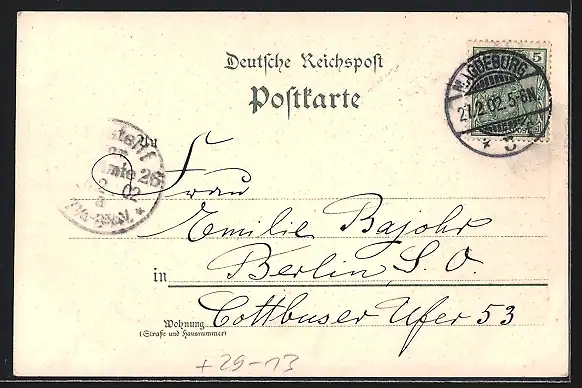 Deutsche Reichspost
Postkarte
5
MAGDEBURG
27.2.02.5-6N
* B
26
02
An
Frau
Emilie Bajohr
in Berlin, S. O.
Wohnung Cottbuser Ufer 53
(Straße und Hausnummer)
+29-13